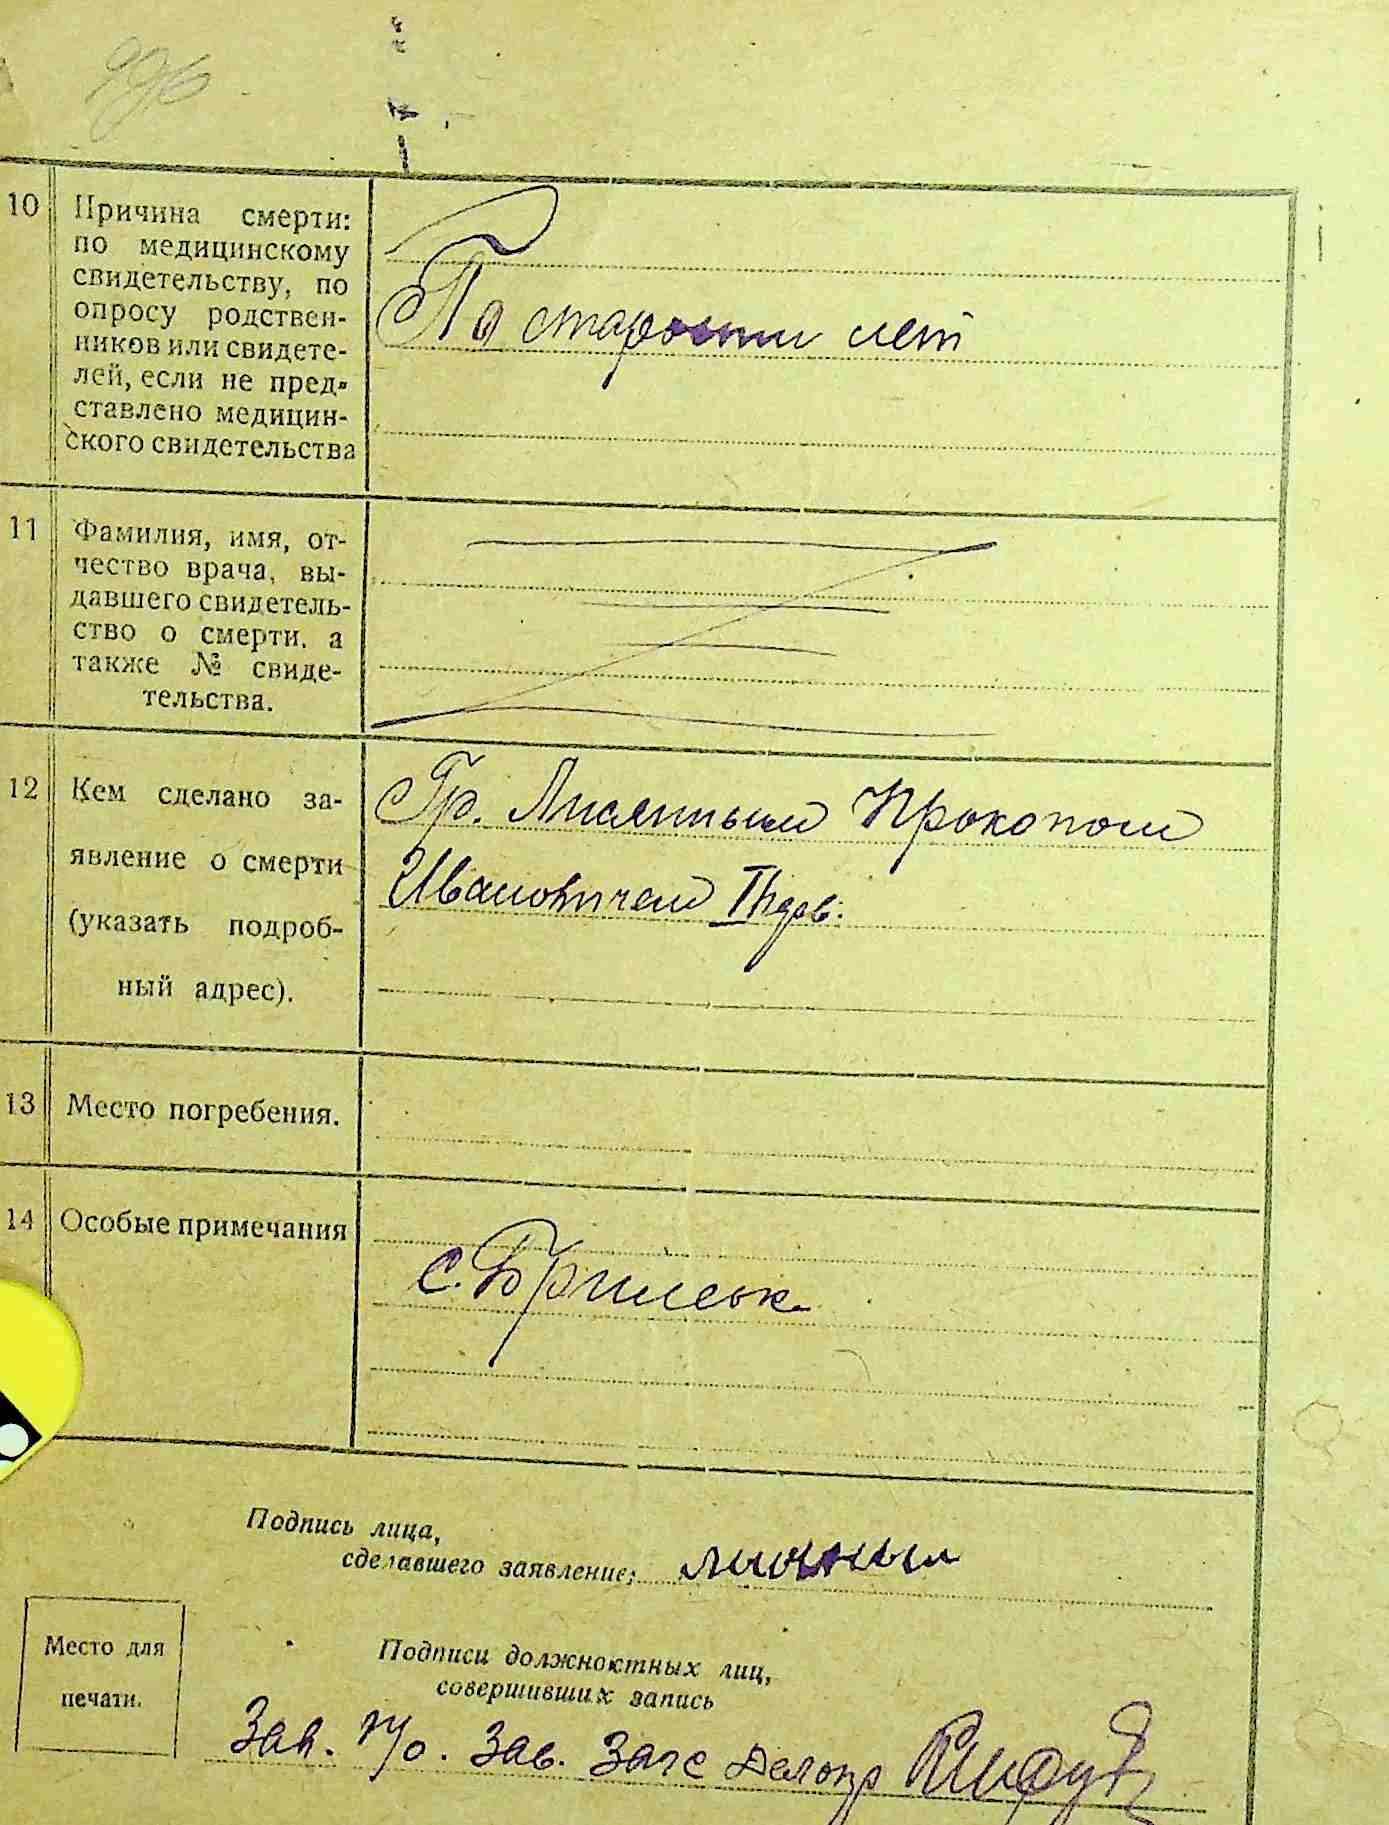 10 Причина смерти:
по медицинскому
свидетельству, по
опросу родствен-
ников или свидете-
лей, если не пред-
ставлено медицин-
ского свидетельства
По старости лет
11 Фамилия, имя, от-
чество врача, вы-
давшего свидетель-
ство о смерти, а
также № свиде-
тельства.
12 Кем сделано за-
явление о смерти
(указать подроб-
ный адрес).
Гр. Прокопом
Ивановичем
13 Место погребения.
14 Особые примечания
с.
Подпись лица,
сделавшего заявление:
Место для
печати.
Подписи должностных лиц,
совершивших запись
Зав. Загс